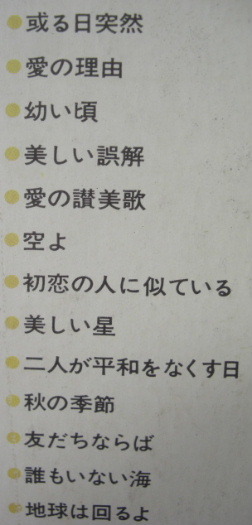 或る日突然
愛の理由
幼い頃
美しい誤解
愛の讃美歌
空よ
初恋の人に似ている
美しい星
二人が平和をなくす日
秋の季節
友だちならば
誰もいない海
地球は回るよ